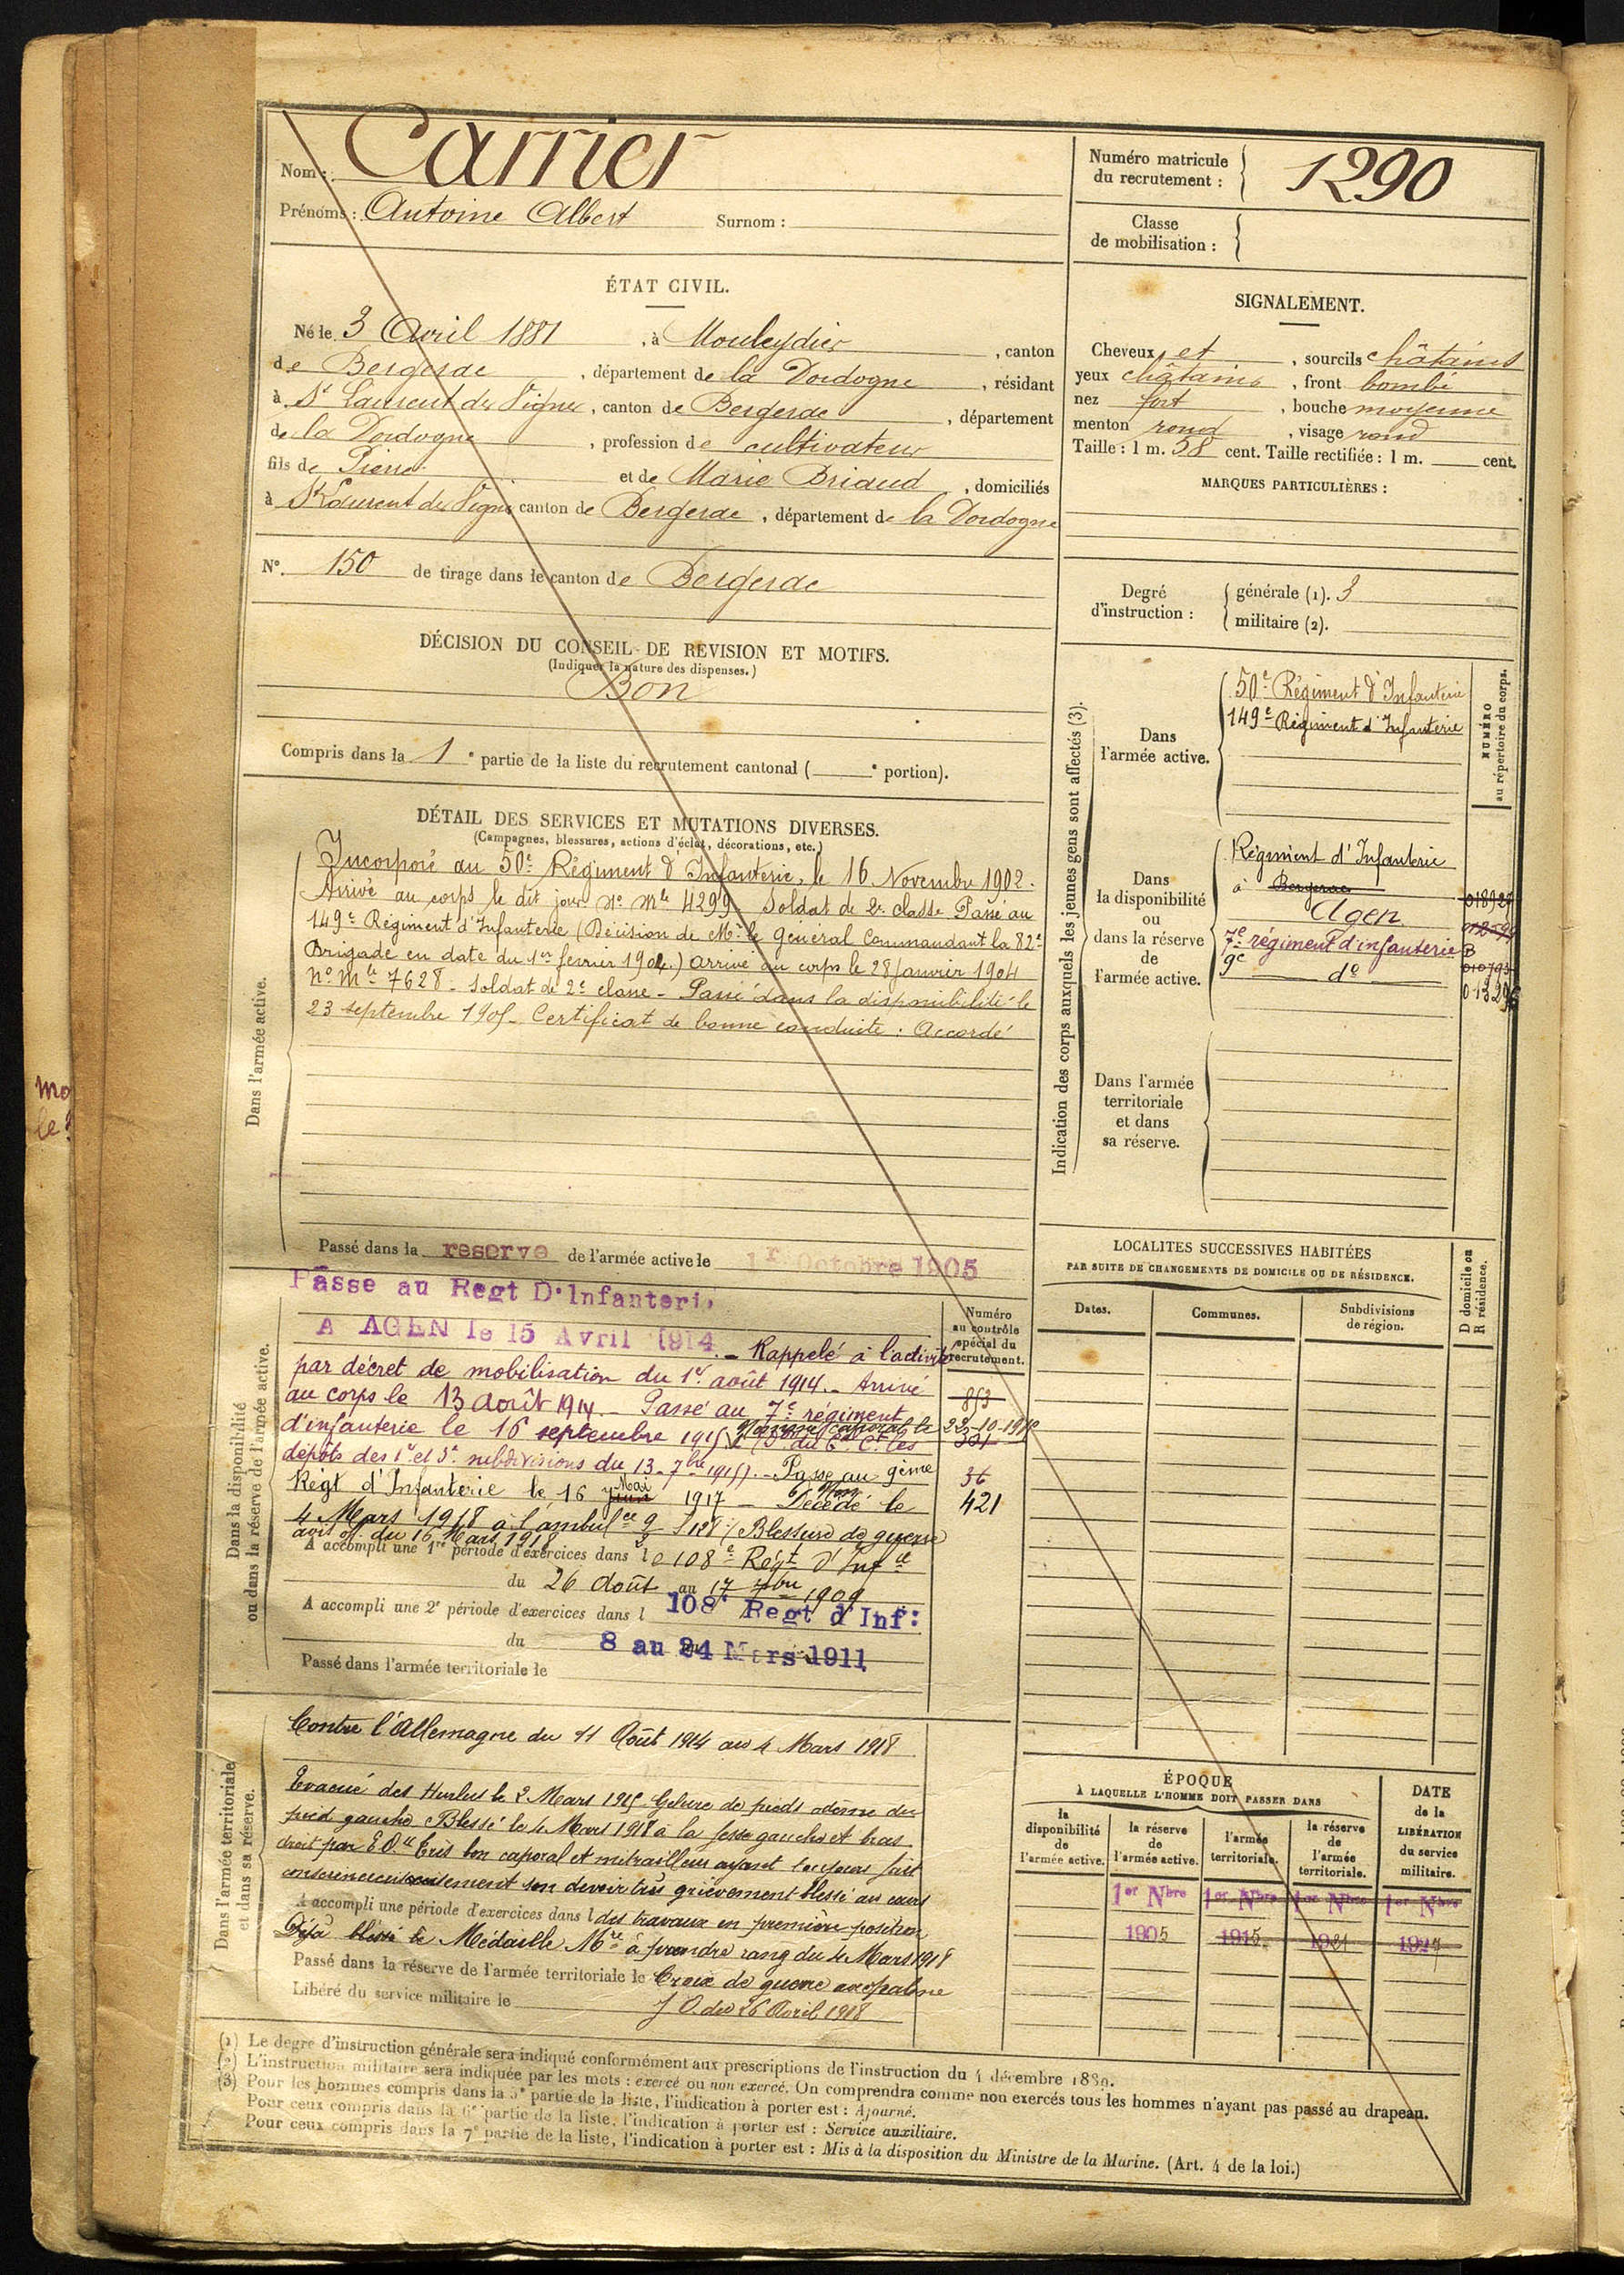 Nom : Carrier
Prénoms : Antoine Albert Surnom :
Numéro matricule
du recrutement : 1290
Classe
de mobilisation :
ÉTAT CIVIL.
Né le 3 Avril 1881, à Mouleydier, canton
de Bergerac, département de la Dordogne, résidant
à St Laurent des Vignes, canton de Bergerac, département
de la Dordogne, profession de cultivateur
fils de Pierre et de Marie Briaud, domiciliés
à St Laurent des Vignes canton de Bergerac, département de la Dordogne
N° 150 de tirage dans le canton de Bergerac
SIGNALEMENT.
Cheveux et, sourcils châtains
yeux châtains, front bombé
nez fort, bouche moyenne
menton rond, visage rond
Taille : 1 m. 58 cent. Taille rectifiée : 1 m. cent.
MARQUES PARTICULIÈRES :
Degré
d'instruction :
générale (1). 3
militaire (2).
DÉCISION DU CONSEIL DE REVISION ET MOTIFS.
(Indiquer la nature des dispenses.)
Bon
Compris dans la 1e partie de la liste du recrutement cantonal ( e portion).
DÉTAIL DES SERVICES ET MUTATIONS DIVERSES.
(Campagnes, blessures, actions d'éclat, décorations, etc.)
Dans l'armée active.
Incorporé au 50e Régiment d'Infanterie, le 16 Novembre 1902.
Arrivé au corps le dit jour No Mle 4299 Soldat de 2e classe Passé au
149e Régiment d'Infanterie (Décision de Mr le Général Commandant la 82e
Brigade en date du 1er février 1904.) arrivé au corps le 28 Janvier 1904
No Mle 7628 - Soldat de 2e classe - Passé dans la disponibilité le
23 septembre 1905 - Certificat de bonne conduite : Accordé
Passé dans la reserve de l'armée active le 1r Octobre 1905
Indication des corps auxquels les jeunes gens sont affectés (3).
NUMÉRO
au répertoire du corps.
Dans
l'armée active.
50e Régiment d'Infanterie
149e Régiment d'Infanterie
Dans
la disponibilité
ou
dans la réserve
de
l'armée active.
Régiment d'Infanterie
à Bergerac
Agen
7e régiment d'infanterie
9e de
Dans l'armée
territoriale
et dans
sa réserve.
Dans la disponibilité
ou dans la réserve de l'armée active.
Passe au Regt D'Infanteri
A AGEN le 15 Avril 1914 - Rappelé à l'activité
par décret de mobilisation du 1er août 1914. - Arrivé
au corps le 13 Août 1914. - Passé au 7e régiment
Nommé caporal le 22-10-1916
d'infanterie le 16 septembre 1915 les
dépôts des 1e et 5e subdivisions du 13-7bre 1915). - Passe au 9ème
Régt d'Infanterie le 16 juin Mai 1917 - Décédé le
4 Mars 1918 à l'ambulce (Blessure de guerre
avis off. du 16 Mars 1918
Numéro
au contrôle
spécial du
recrutement.
853
36
421
A accompli une 1re période d'exercices dans le 108e Régt d'Infie
du 26 Août au 17 7bre 1909
A accompli une 2e période d'exercices dans l 108e Regt d'Inf:
du 8 au 24 Mars 1911
Passé dans l'armée territoriale le
LOCALITES SUCCESSIVES HABITÉES
PAR SUITE DE CHANGEMENTS DE DOMICILE OU DE RÉSIDENCE.
Dates.
Communes.
Subdivisions
de région.
D domicile ou
R résidence.
Dans l'armée territoriale
et dans sa réserve.
Contre l'Allemagne du 11 Août 1914 au 4 Mars 1918
Evacué des Hurlus le 2 Mars 1915 Gelure de pieds œdème du
pied gauche Blessé le 4 Mars 1918 à la fesse gauche et bras
droit par E. O. Très bon caporal et mitrailleur ayant toujours fait
consciencieusement son devoir très grièvement blessé au cours
A accompli une période d'exercices dans l des travaux en première position
Déjà blessé Médaille Mre à prendre rang du 4 Mars 1918
Passé dans la réserve de l'armée territoriale le Croix de guerre avec palme
Libéré du service militaire le J. O. du 26 Avril 1918
ÉPOQUE
À LAQUELLE L'HOMME DOIT PASSER DANS
la
disponibilité
de
l'armée active.
la réserve
de
l'armée active.
l'armée
territoriale.
la réserve
de
l'armée
territoriale.
DATE
de la
LIBÉRATION
du service
militaire.
1er Nbre 1er Nbre 1er Nbre 1er Nbre
1905 1915 1921 1927
(1) Le degré d'instruction générale sera indiqué conformément aux prescriptions de l'instruction du 4 décembre 1889.
(2) L'instruction militaire sera indiquée par les mots : exercé ou non exercé. On comprendra comme non exercés tous les hommes n'ayant pas passé au drapeau.
(3) Pour les hommes compris dans la 5e partie de la liste, l'indication à porter est : Ajourné.
Pour ceux compris dans la 6e partie de la liste, l'indication à porter est : Service auxiliaire.
Pour ceux compris dans la 7e partie de la liste, l'indication à porter est : Mis à la disposition du Ministre de la Marine. (Art. 4 de la loi.)